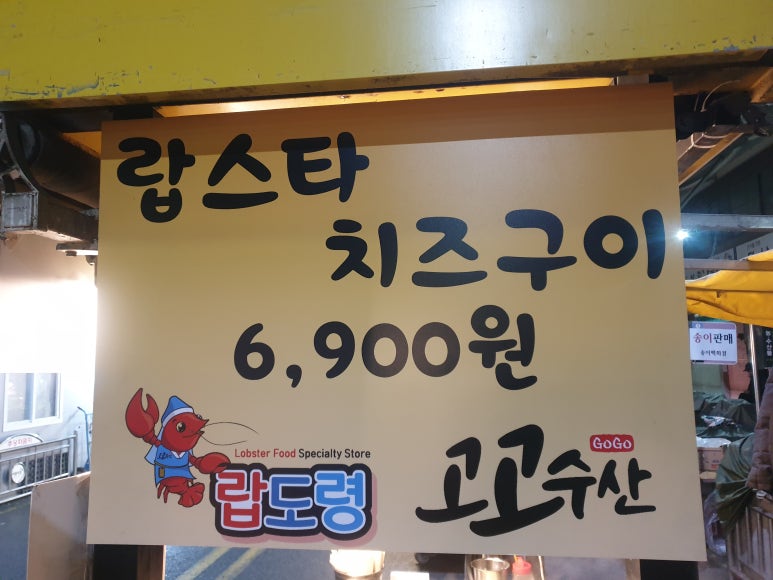 랍스타
치즈구이
6,900원
Lobster Food Specialty Store
랍도령
GoGo
고고수산
송이판매
송이백화점